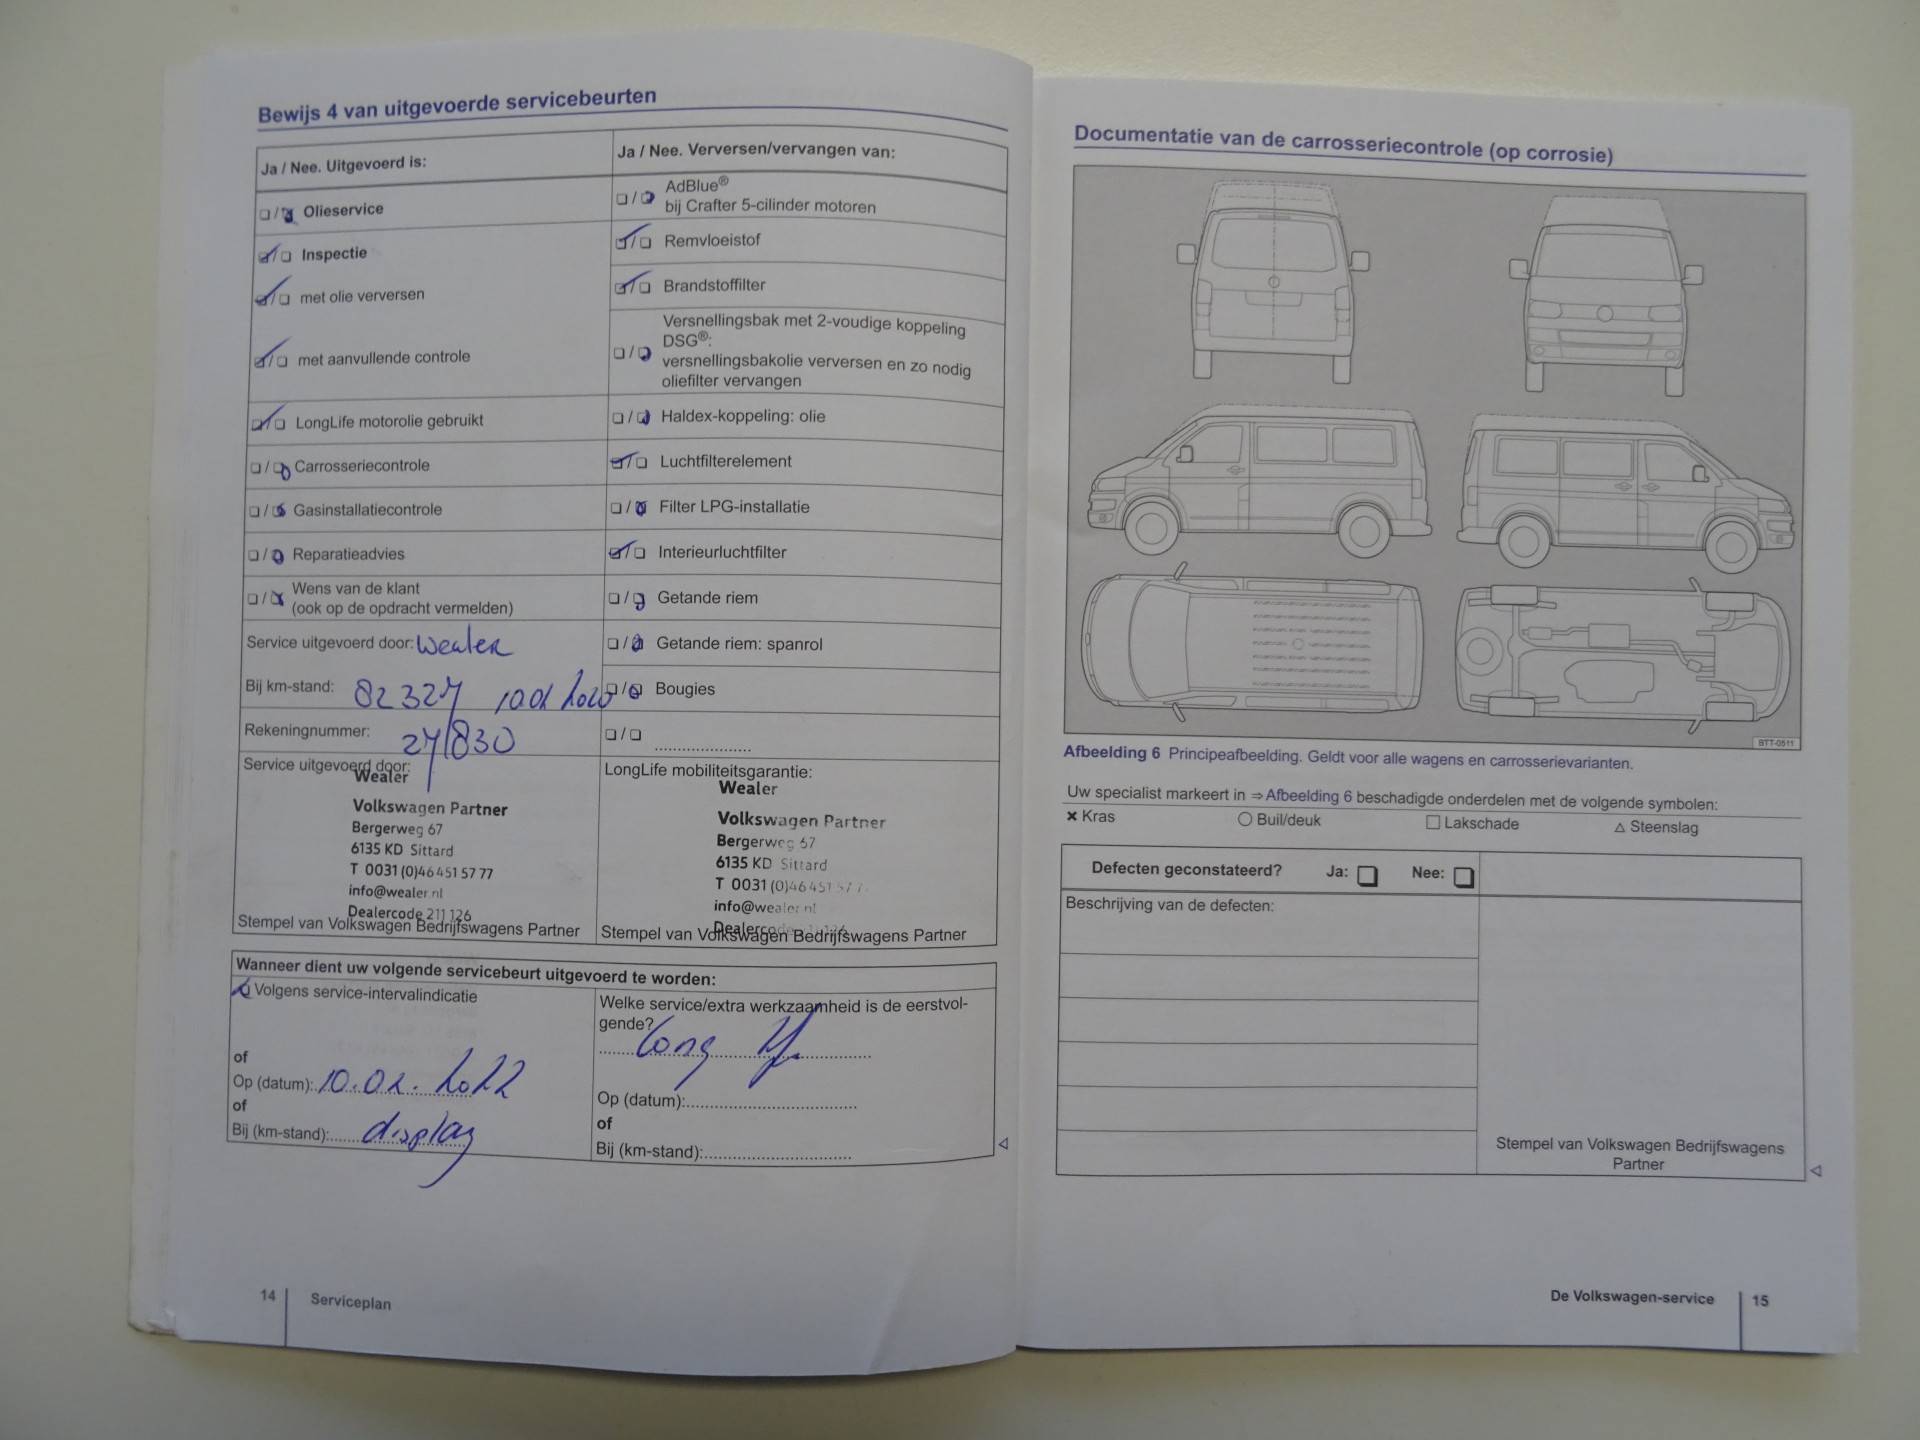 Bewijs 4 van uitgevoerde servicebeurten
Ja / Nee. Uitgevoerd is:
Olieservice
Inspectie
met olie verversen
met aanvullende controle
LongLife motorolie gebruikt
Carrosseriecontrole
Gasinstallatiecontrole
Reparatieadvies
Wens van de klant
(ook op de opdracht vermelden)
Service uitgevoerd door: Wealer
Bij km-stand: 82327
Rekeningnummer:
Service uitgevoerd door:
Wealer
Volkswagen Partner
Bergerweg 67
6135 KD Sittard
T 0031 (0)46 451 57 77
info@wealer.nl
Dealercode 211 126
Stempel van Volkswagen Bedrijfswagens Partner
Ja / Nee. Verversen/vervangen van:
AdBlue®
bij Crafter 5-cilinder motoren
Remvloeistof
Brandstoffilter
Versnellingsbak met 2-voudige koppeling
DSG®:
versnellingsbakolie verversen en zo nodig
oliefilter vervangen
Haldex-koppeling: olie
Luchtfilterelement
Filter LPG-installatie
Interieurluchtfilter
Getande riem
Getande riem: spanrol
Bougies
LongLife mobiliteitsgarantie:
Wealer
Volkswagen Partner
Bergerweg 67
6135 KD Sittard
T 0031 (0)46 451 57 7
info@wealer.nl
Dealercode
Stempel van Volkswagen Bedrijfswagens Partner
Wanneer dient uw volgende servicebeurt uitgevoerd te worden:
Volgens service-intervalindicatie
of
Op (datum): 10.02.2022
of
Bij (km-stand): display
Welke service/extra werkzaamheid is de eerstvol-
gende?
Long
Op (datum):
of
Bij (km-stand):
14 Serviceplan
Documentatie van de carrosseriecontrole (op corrosie)
BTT-0511
Afbeelding 6 Principeafbeelding. Geldt voor alle wagens en carrosserievarianten.
Uw specialist markeert in ⇒ Afbeelding 6 beschadigde onderdelen met de volgende symbolen:
Kras Buil/deuk Lakschade Steenslag
Defecten geconstateerd? Ja: Nee:
Beschrijving van de defecten:
Stempel van Volkswagen Bedrijfswagens
Partner
De Volkswagen-service 15